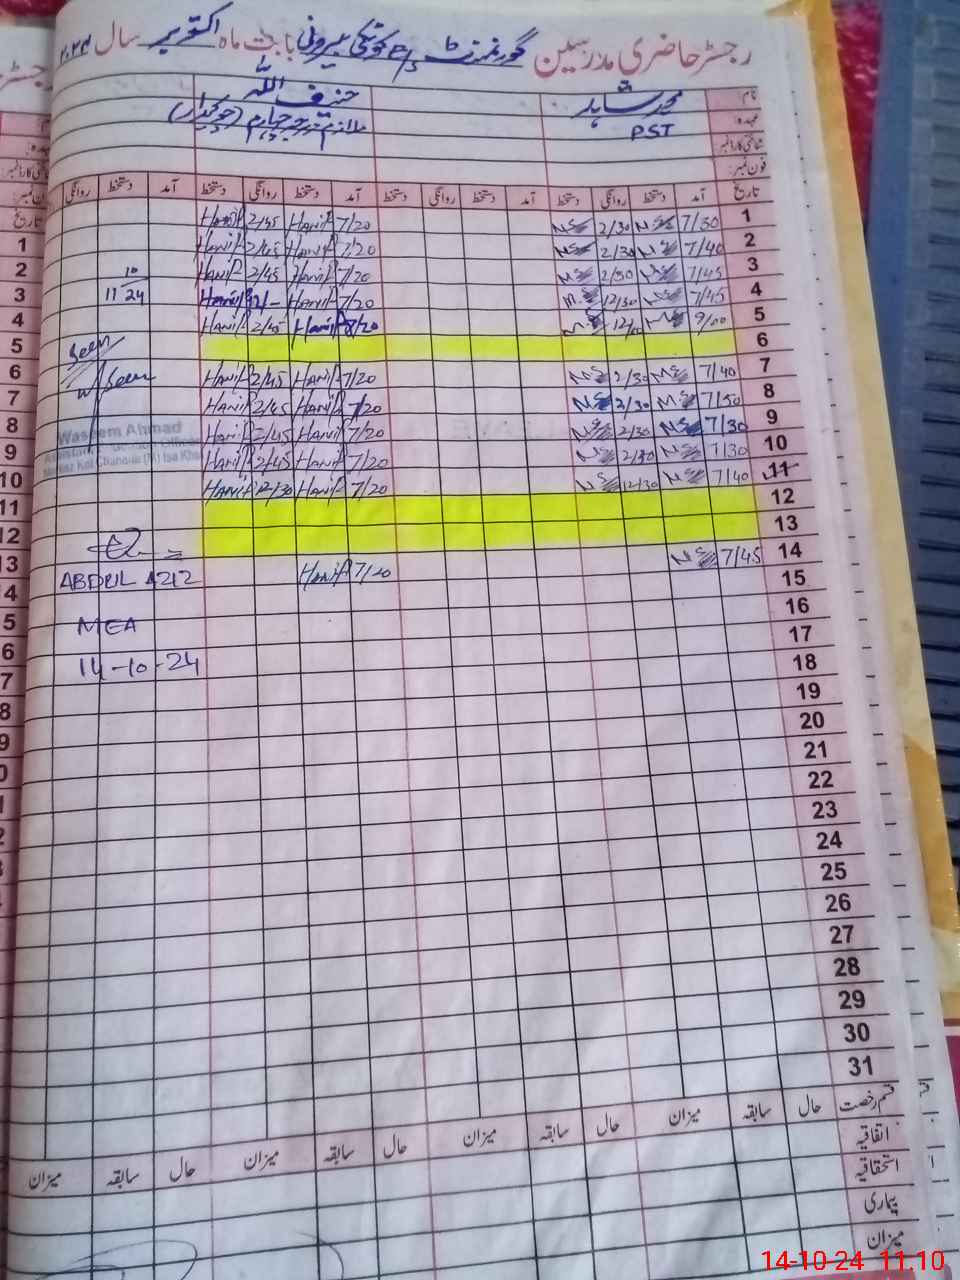 رجسٹر حاضری مدرسین گورنمنٹ P/S کوٹکی بیرونی بابت ماہ اکتوبر سال ۲۰۲۴
نام: محمد شاہد حنیف اللہ
عہدہ: PST ملازم درجہ چہارم (چوکیدار)
شناختی کارڈ نمبر:
فون نمبر:
تاریخ آمد دستخط روانگی دستخط آمد دستخط روانگی دستخط آمد دستخط روانگی دستخط آمد دستخط روانگی
1 7/30 2/30 7/20 Hanif 2/45 Hanif
2 7/40 2/30 7/20 Hanif 2/45 Hanif
3 7/45 2/30 7/20 Hanif 2/45 Hanif
4 7/45 12/30 7/20 Hanif 12/- Hanif
5 9/00 12/00 8/20 Hanif 2/45 Hanif
6
7 7/40 2/30 7/20 Hanif 2/45 Hanif
8 7/50 2/30 7/20 Hanif 2/45 Hanif
9 7/30 2/30 7/20 Hanif 2/45 Hanif
10 7/30 2/30 7/20 Hanif 2/45 Hanif
11 7/40 12/30 7/20 Hanif 12/30 Hanif
12
13
14 7/45 7/20 Hanif
15
16
17
18
19
20
21
22
23
24
25
26
27
28
29
30
31
10
11 24
Seen
Seen
Waseem Ahmad
ABDUL AZIZ
MEA
14-10-24
قسم رخصت حال سابقہ میزان حال سابقہ میزان حال سابقہ میزان حال سابقہ میزان
اتفاقیہ
استحقاقیہ
بیماری
میزان
14-10-24 11.10